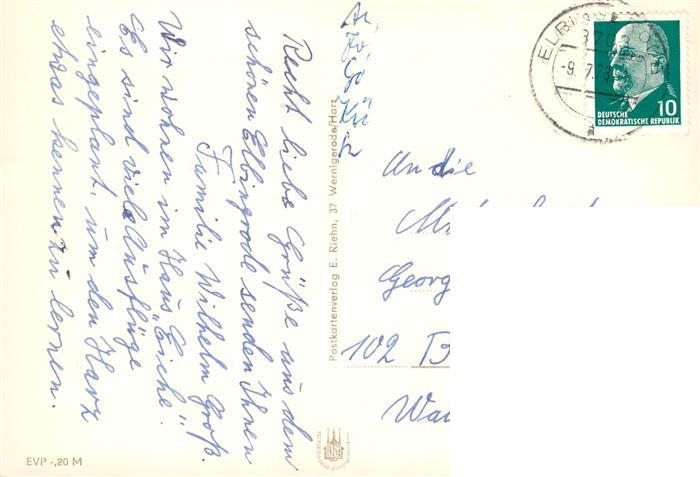 Recht liebe Grüße aus dem
schönen Elbingrode senden Ihnen
Familie Wilhelm Groß.
Wir wohnen im Haus "Eiche".
Es sind viele Ausflüge
eingeplant, um den Harz
etwas kennen zu lernen.
Postkartenverlag E. Riehn, 37 Wernigerode/Harz
EVP -,20 M
ELBINGE
10
DEUTSCHE
DEMOKRATISCHE REPUBLIK
An die
Georg
102 B